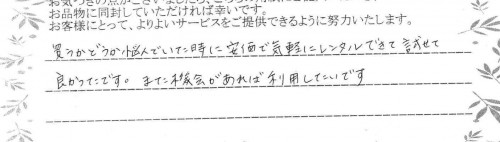 お気づきの点がございましたら、
お品物に同封していただければ幸いです。
お客様にとって、よりよいサービスをご提供できるように努力いたします。
買うかどうか悩んでいた時に安価で気軽にレンタルできて試せて
良かったです。また機会があれば利用したいです